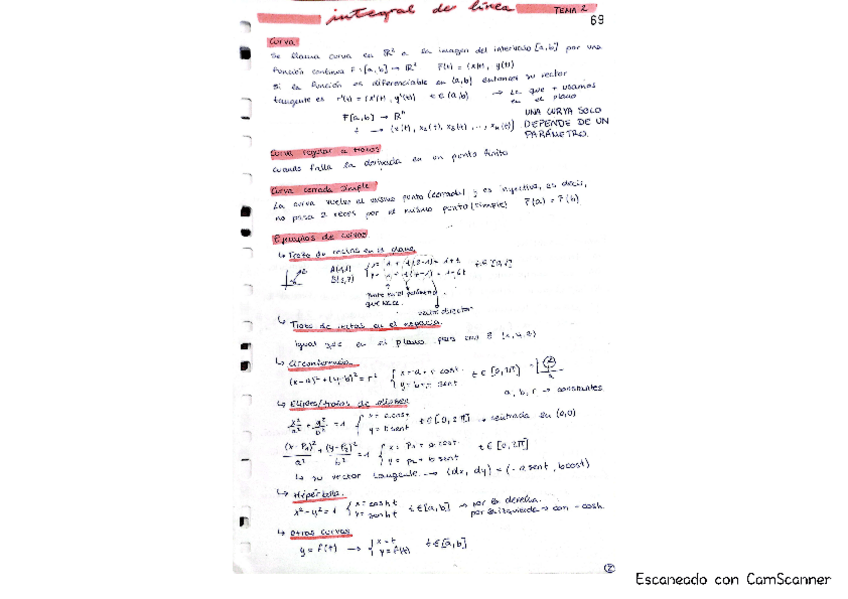 integral de línea TEMA 2
69
Curva
Se llama curva en ℝ² a la imagen del intervalo [a,b] por una
función continua F: [a,b] → ℝ² F(t) = (x(t), y(t))
Si la función es diferenciable en (a,b) entonces su vector
tangente es r'(t) = (x'(t), y'(t)) t ∈ (a,b) → La que + usamos
en el plano
F[a,b] → ℝⁿ
t → (x₁(t), x₂(t), x₃(t), ..., xₙ(t))
UNA CURVA SOLO
DEPENDE DE UN
PARÁMETRO.
Curva regular a trozos
cuando falla la derivada en un punto finito
Curva cerrada simple
La curva vuelve al mismo punto (cerrada) y es inyectiva, es decir,
no pasa 2 veces por el mismo punto (simple) F(a) = F(b)
Ejemplos de curvas
↳ Trozo de rectas en el plano
t ∈ [0,1]
vector director
↳ Trozo de rectas en el espacio.
igual que en el plano pero con z (x,y,z)
↳ Circunferencia
(x-a)² + (y-b)² = r² { x = a + r cost
y = b + r sent t ∈ [0,2π]
a, b, r → constantes
↳ Elipses/trozos de elipses
x²/a² + y²/b² = 1 { x = a cost
y = b sent t ∈ [0,2π] → centrada en (0,0)
(x-P₁)²/a² + (y-P₂)²/b² = 1 { x = P₁ + a cost
y = P₂ + b sent t ∈ [0,2π]
↳ su vector tangente → (dx, dy) = (-a sent, b cost)
↳ Hipérbola.
x² - y² = 1 { x = cosh t
y = senh t t ∈ [a,b] → por la derecha.
por la izquierda → con - cosh.
↳ Otras curvas
y = f(t) → { x = t
y = f(t) t ∈ [a,b]
2
Escaneado con CamScanner